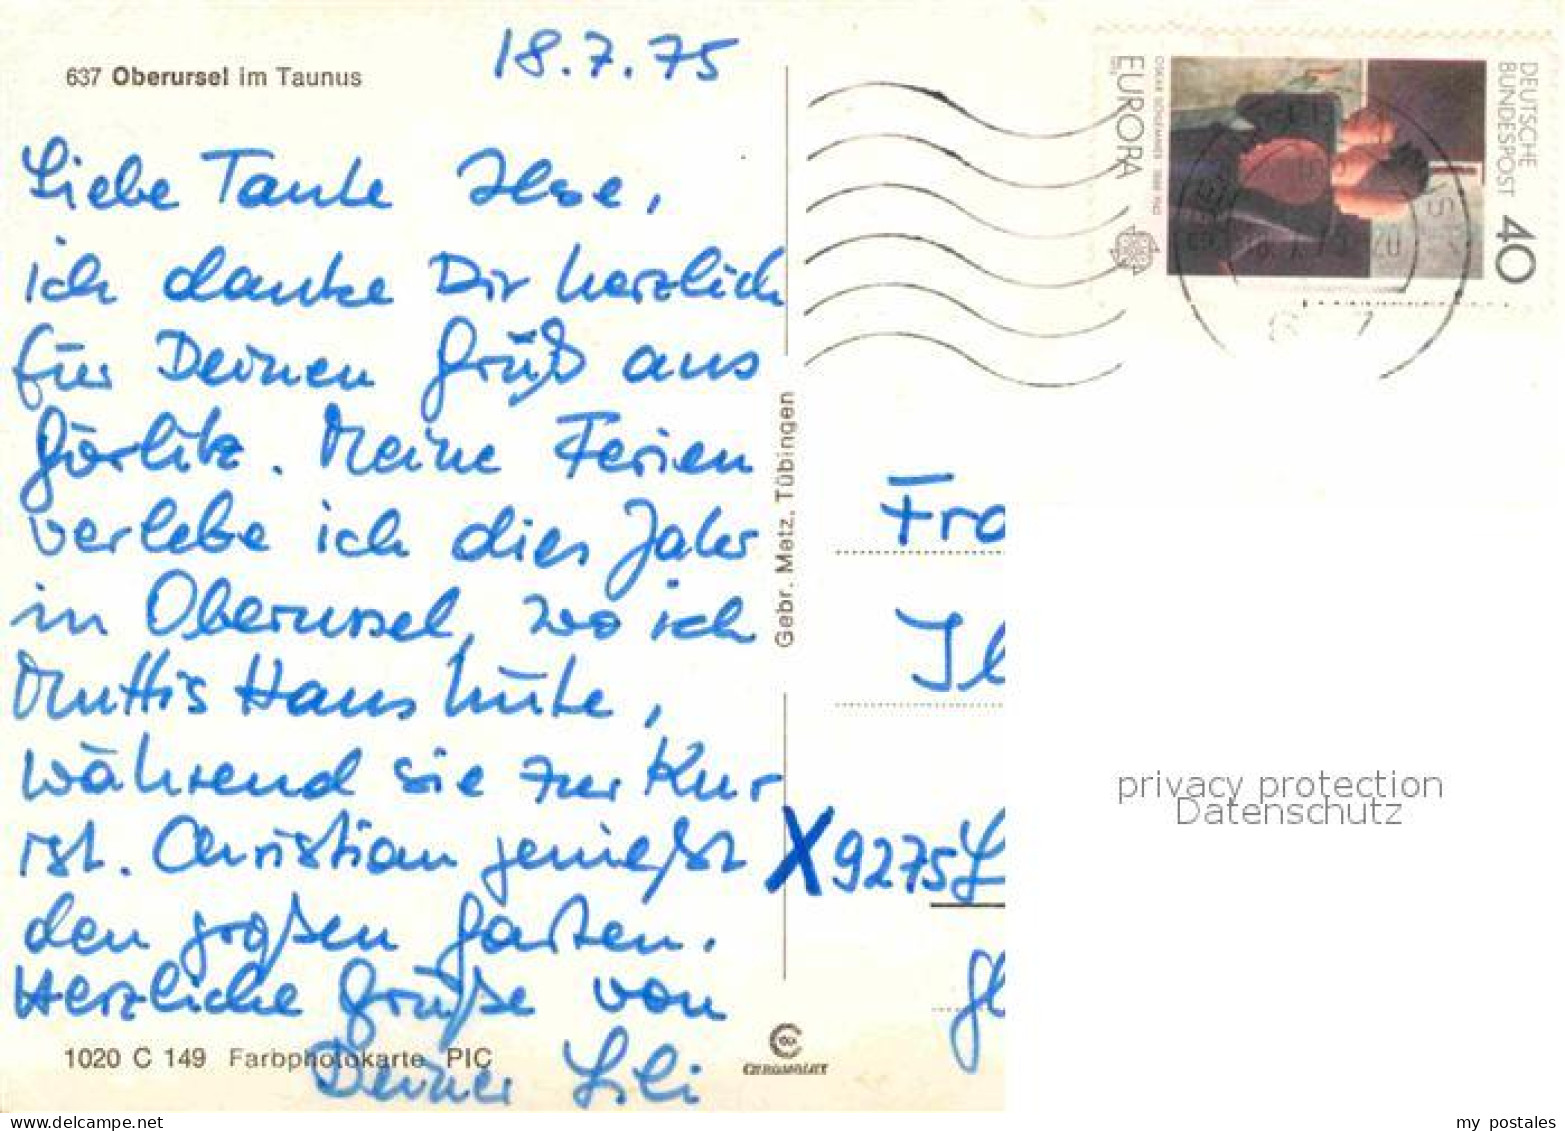 637 Oberursel im Taunus
18.7.75
Liebe Tante Ilse,
ich danke Dir herzlich
für Deinen Gruß aus
Görlitz. Meine Ferien
verlebe ich dies Jahr
in Oberursel, wo ich
Muttis Haus hüte,
während sie zur Kur
ist. Christian genießt
den großen Garten.
Herzliche Grüße von
Deiner Lili
1020 C 149 Farbphotokarte PIC
Gebr. Metz, Tübingen
DEUTSCHE
BUNDESPOST 40
OSKAR SCHLEMMER 1888-1943
EUROPA
Fra
Il
X9275L
gl
privacy protection
Datenschutz
my postales